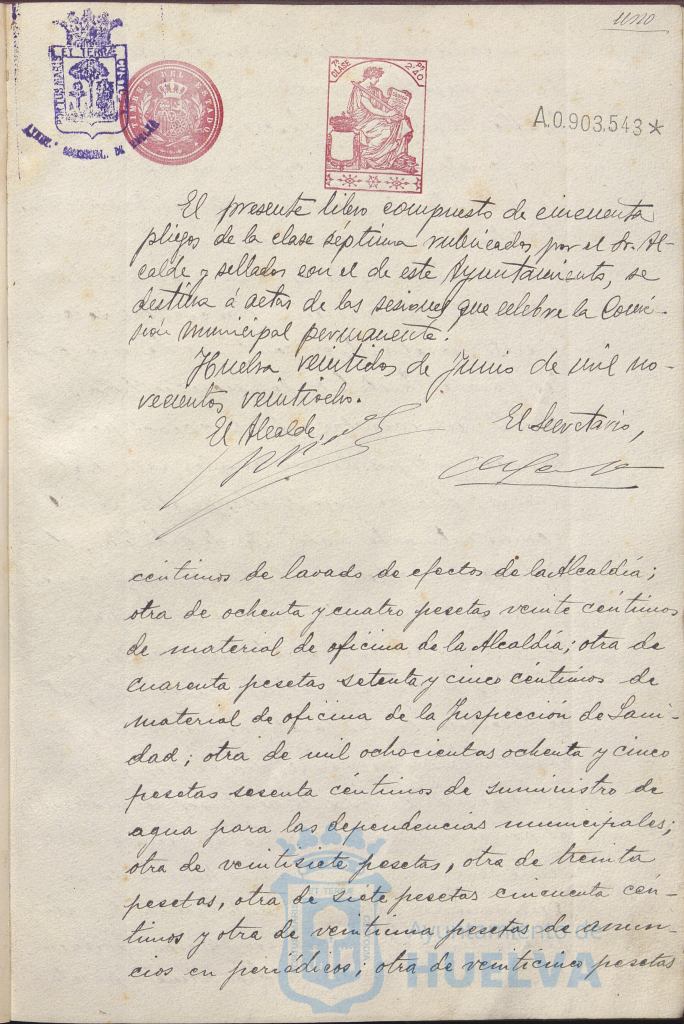 uno
PORTUS MARIS
ET TERRE
CUSTODIA
TIMBRE DEL ESTADO
7ª CLASE
PS 2'40
A.0.903,543*
El presente libro compuesto de cincuenta
pliegos de la clase séptima rubricados por el Sr. Al-
calde y sellados con el de este Ayuntamiento, se
destina á actas de las sesiones que celebre la Comi-
sión municipal permanente.
Huelva veintidos de Junio de mil no-
vecientos veintiocho.
El Alcalde,
El Secretario,
céntimos de lavado de efectos de la Alcaldía;
otra de ochenta y cuatro pesetas veinte céntimos
de material de oficina de la Alcaldía; otra de
cuarenta pesetas setenta y cinco céntimos de
material de oficina de la Inspección de Sani-
dad; otra de mil ochocientas ochenta y cinco
pesetas sesenta céntimos de suministro de
agua para las dependencias municipales;
otra de veintisiete pesetas, otra de treinta
pesetas, otra de siete pesetas cincuenta cén-
timos y otra de veintiuna pesetas de anun-
cios en periódicos; otra de veinticinco pesetas
Ayuntamiento de
HUELVA